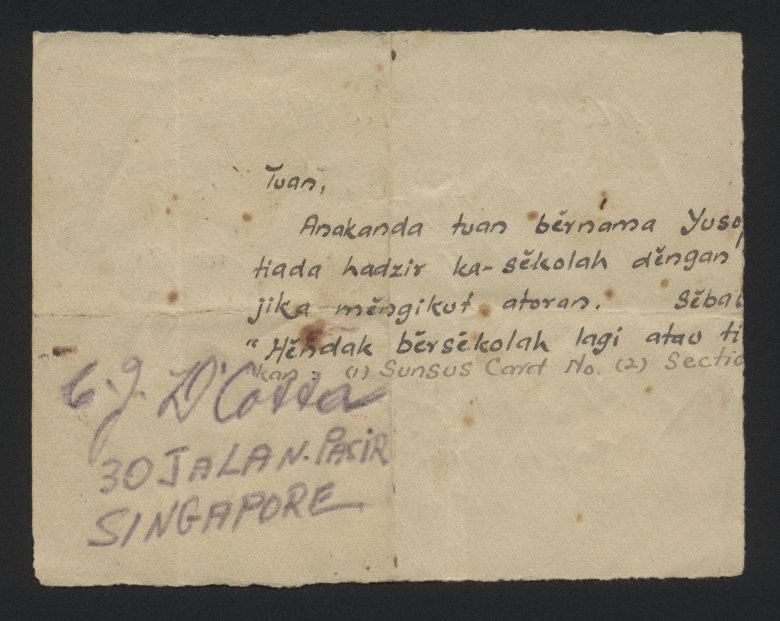 Tuan,
Anakanda tuan bĕrnama Yusop
tiada hadzir ka-sĕkolah dĕngan
jika mĕngikut atoran. Sĕbab
"Hĕndak bĕrsĕkolah lagi atau ti
kan: (1) Sunsus Card No. (2) Sectio
C. J. D'Cotta
30 JALAN. PASIR
SINGAPORE